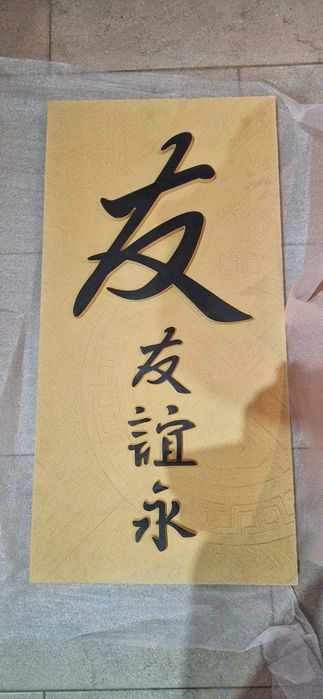 友
友誼永